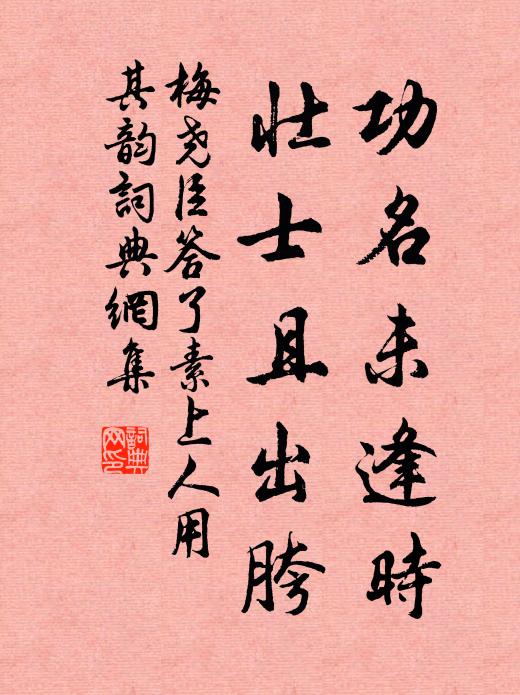 功名未逢時
壮士且出胯
梅尧臣答了素上人用
其韵詞典網集
詞典網印